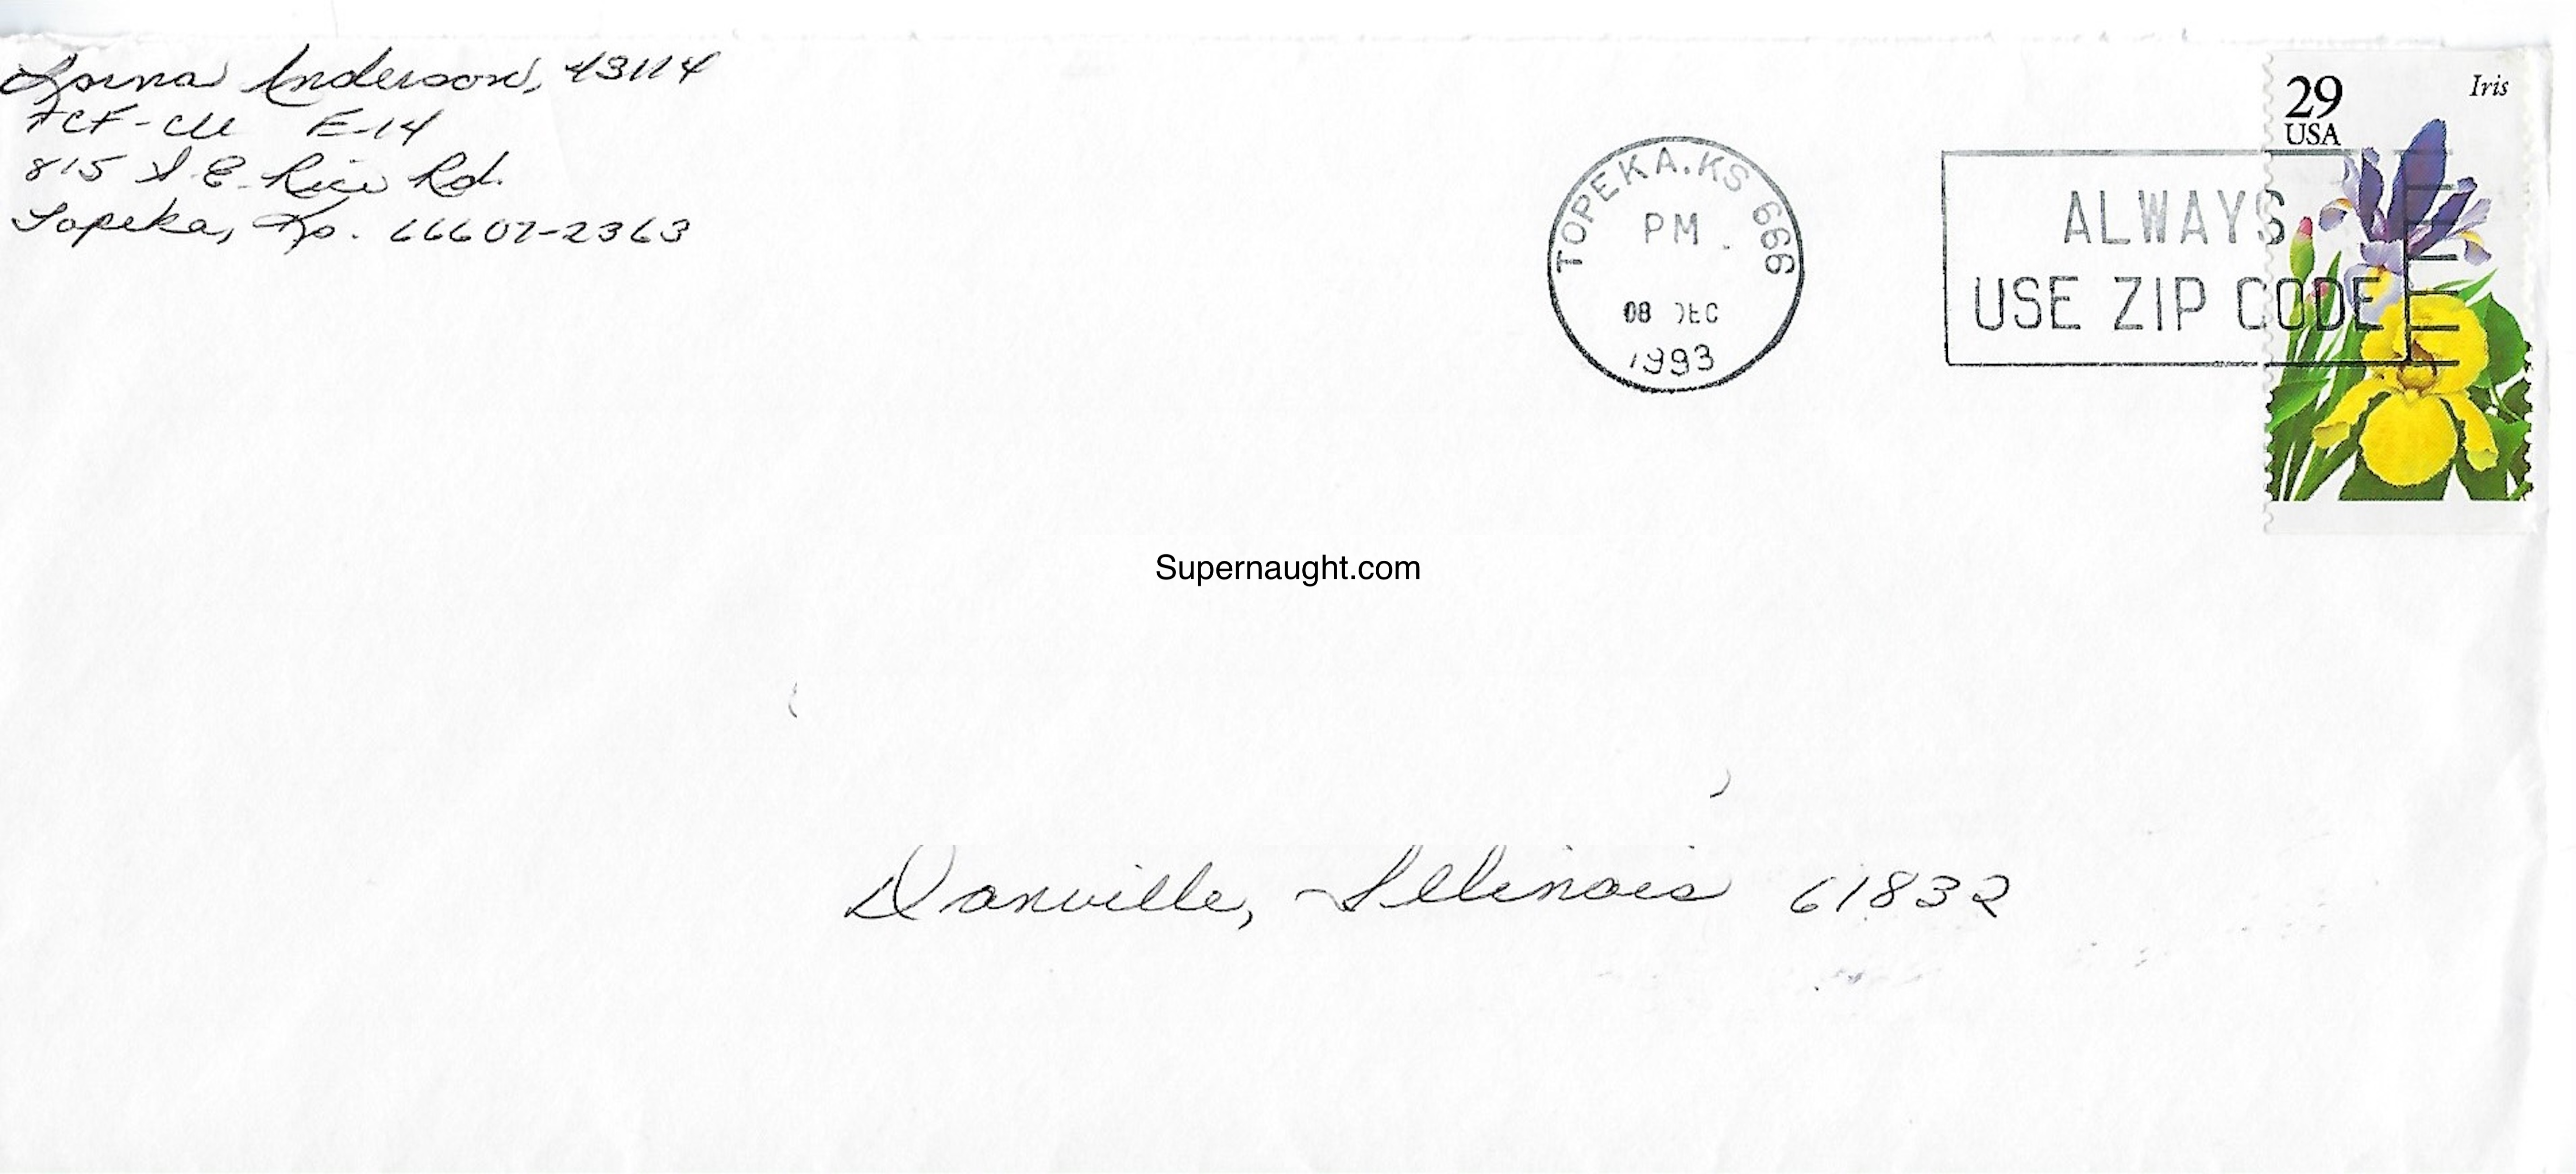 Lorna Anderson, 43114
TCF-CU E-14
815 S. E. Rice Rd.
Topeka, Ks. 66607-2363
TOPEKA.KS 666
PM
08 DEC
1993
ALWAYS
USE ZIP CODE
29
USA
Iris
Supernaught.com
Danville, Illinois 61832